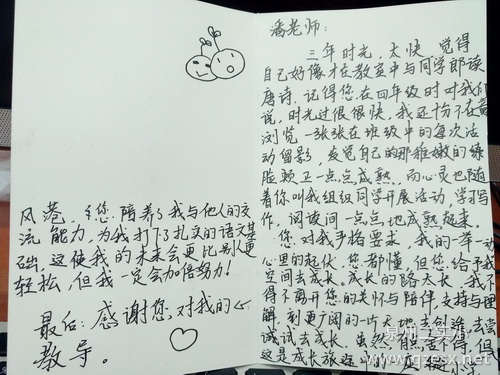 潘老师：
三年时光，太快，觉得
自己好像才在教室中与同学郎读
唐诗。记得您在四年级时对我们
说，时光过很很快，我还十分不在意
浏览一张张在班级中的每次活
动留影，发觉自己的那稚嫩的
脸 正一点点成熟，而心灵也随
着你叫我组织同学开展活动，学习写
作，阅读间一点点地成熟起来。
您对我严格要求，我的一举一动
心里的起伏，您都懂，但您给予我
空间去成长。成长的路太长，我不
得不离开您的关怀与陪伴，支持与理
解，到更广阔的一片天地去创造，去尝
试 去成长。虽然有点舍不得，但
这是成长旅途中的
风卷，您陪养了我与他人的交
流能力，为我打下了扎实的语文基
础，这使我的未来会更比别人更
轻松，但我一定会加倍努力！
最后：感谢您，对我的
教导。
www.gzesx.net